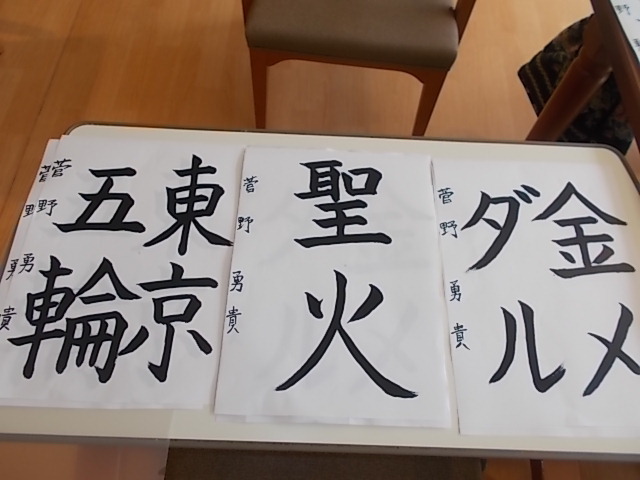 東京
五輪
菅野 勇貴
聖火
菅野 勇貴
金メ
ダル
菅野 勇貴